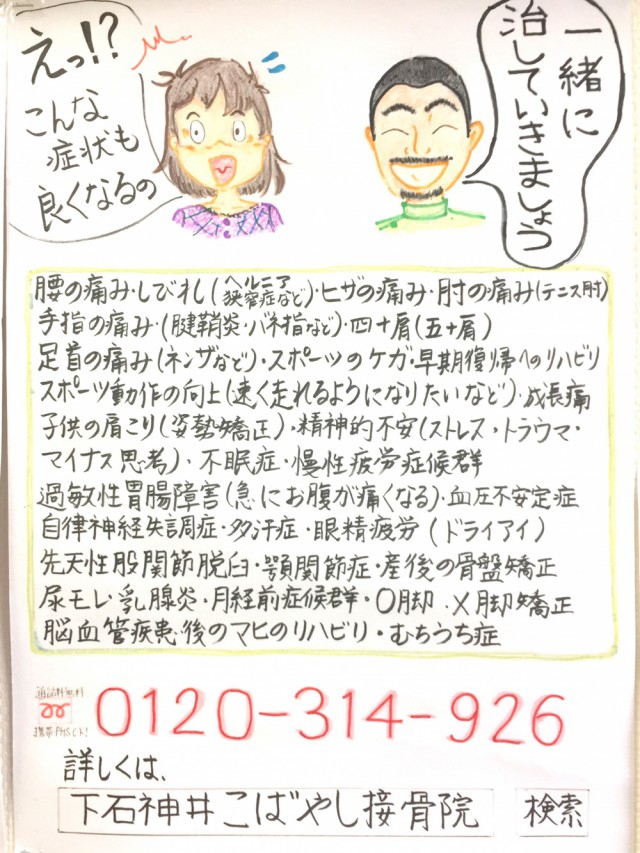 えっ!?
こんな
症状も
良くなるの
一緒に
治していきましょう
腰の痛み・しびれ(ヘルニア狭窄症など)・ヒザの痛み・肘の痛み(テニス肘)
手指の痛み・(腱鞘炎・バネ指など)・四十肩(五十肩)
足首の痛み(ネンザなど)・スポーツのケガ・早期復帰へのリハビリ
スポーツ動作の向上(速く走れるようになりたいなど)・成長痛
子供の肩こり(姿勢矯正)・精神的不安(ストレス・トラウマ・
マイナス思考)・不眠症・慢性疲労症候群
過敏性胃腸障害(急にお腹が痛くなる)・血圧不安定症
自律神経失調症・多汗症・眼精疲労(ドライアイ)
先天性股関節脱臼・顎関節症・産後の骨盤矯正
尿モレ・乳腺炎・月経前症候群・O脚・X脚矯正
脳血管疾患後のマヒのリハビリ・むちうち症
通話料無料
携帯・PHSOK!
0120-314-926
詳しくは、
下石神井こばやし接骨院 検索